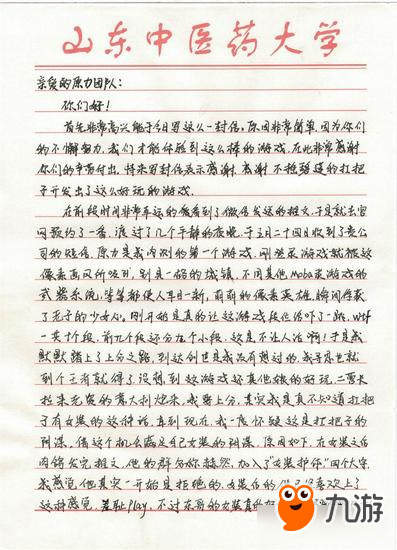 山东中医药大学
亲爱的原力团队:
你们好!
首先非常高兴能于今日写这么一封信,原因非常简单,因为你们
的不懈努力,我们才能体验到这么棒的游戏,在此非常感谢
你们的辛苦付出,特来写封信表示感谢,感谢
开发出了这么好玩的游戏。
在前段时间非常幸运的 看到了 发送的推文,于是就去官
网预约了一番,渡过了几个平静的夜晚,于三月二十四日收到了贵公
司的短信,原力是我内测的第一个游戏,刚登录游戏就被这
像素画风所吸引,别具一格的城镇,不同其他moba类游戏的
武器系统,等等都使人耳目一新,萌萌的像素英雄,瞬间俘获
了老子的少女心。刚开始是真的让这游戏段位给吓了一跳,wtf
一共十个段,前九个段还分九个小段,这是不让人活啊!于是我
默默踏上了上分之路,到这创
到个王者就得了,没想到这游戏还真他娘的好玩,二
拉来无数的意大利炮来,我要上分,其实我是真不知道打把子
了有女装的这件事,直到现在,我一度怀疑这是打把子的
阴谋,借这个机会满足自己女装的阴谋,原因如下,在女装之后
的 发完推文,他的群 赫然,加入了"女装护体"四个大字,
我感觉,他其实一开始是拒绝的,女装后的 喜欢上了
这种感觉,羞耻play,不过东哥的女装真
九游